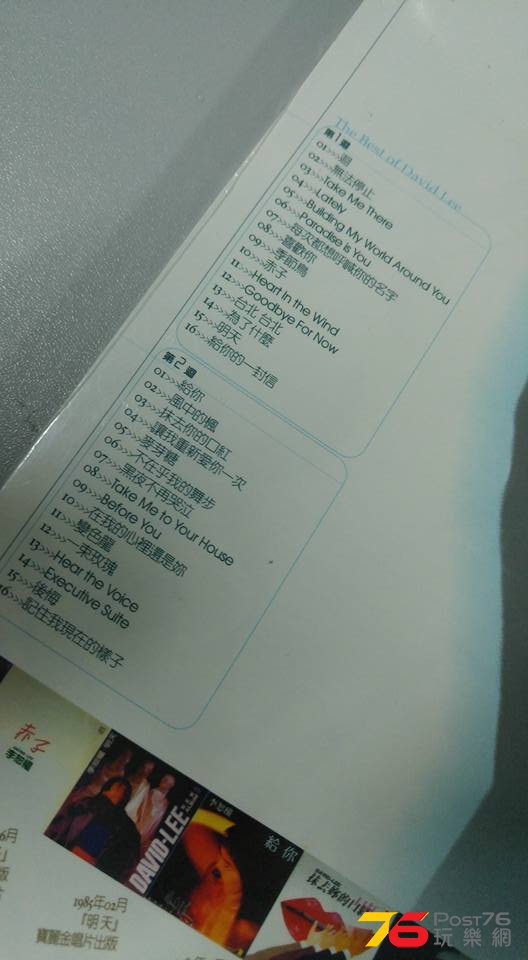 The Best of David Lee
第1週
01>>>迴
02>>>無法停止
03>>>Take Me There
04>>>Lately
05>>>Building My World Around You
06>>>Paradise is You
07>>>每次都想呼喊你的名字
08>>>喜歡你
09>>>季節鳥
10>>>赤子
11>>>Heart in the Wind
12>>>Goodbye For Now
13>>>台北 台北
14>>>為了什麼
15>>>明天
16>>>給你的一封信
第2週
01>>>給你
02>>>風中的楓
03>>>抹去你的口紅
04>>>讓我重新愛你一次
05>>>麥芽糖
06>>>不在乎我的舞步
07>>>黑夜不再哭泣
08>>>Take Me to Your House
09>>>Before You
10>>>在我的心裡還是妳
11>>>變色龍
12>>>一束玫瑰
13>>>Hear the Voice
14>>>Executive Suite
15>>>後悔
16>>>記住我現在的樣子
赤子
DAVID·LEE
給你
抹去你的口紅
6月
1985年02月
「明天」
寶麗金唱片出版
76 POST76
玩樂網